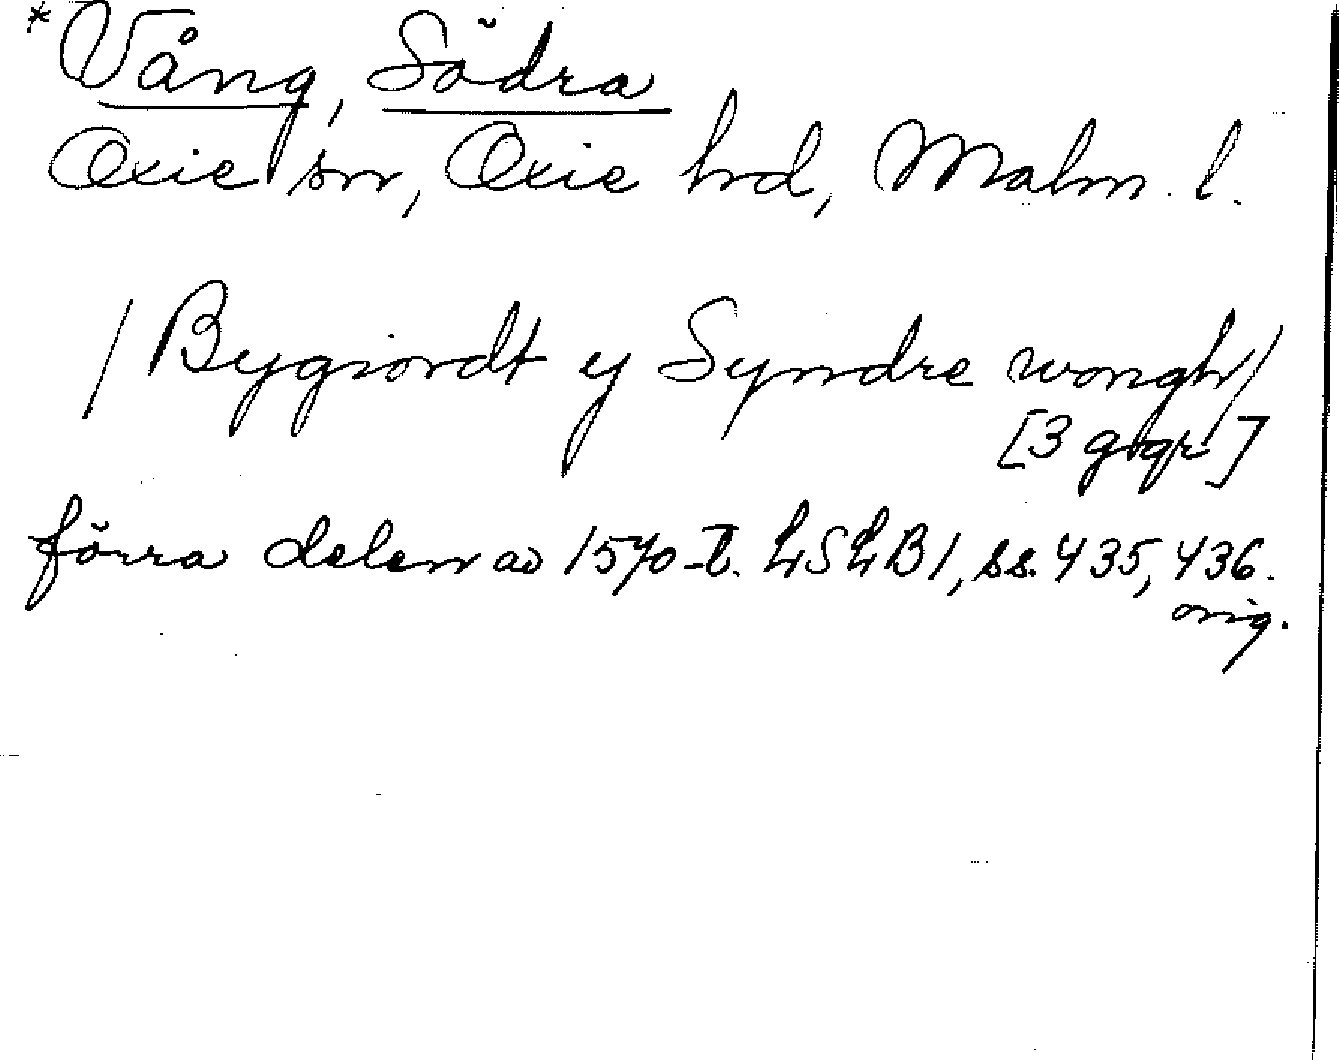 *Vång, Södra
Oxie sn, Oxie hd, Malm. l.
/Bygiordt y Syndre wongh/
[3 ggr]
förra delen av 1570-t. LSLB1, ss. 435, 436.
orig.